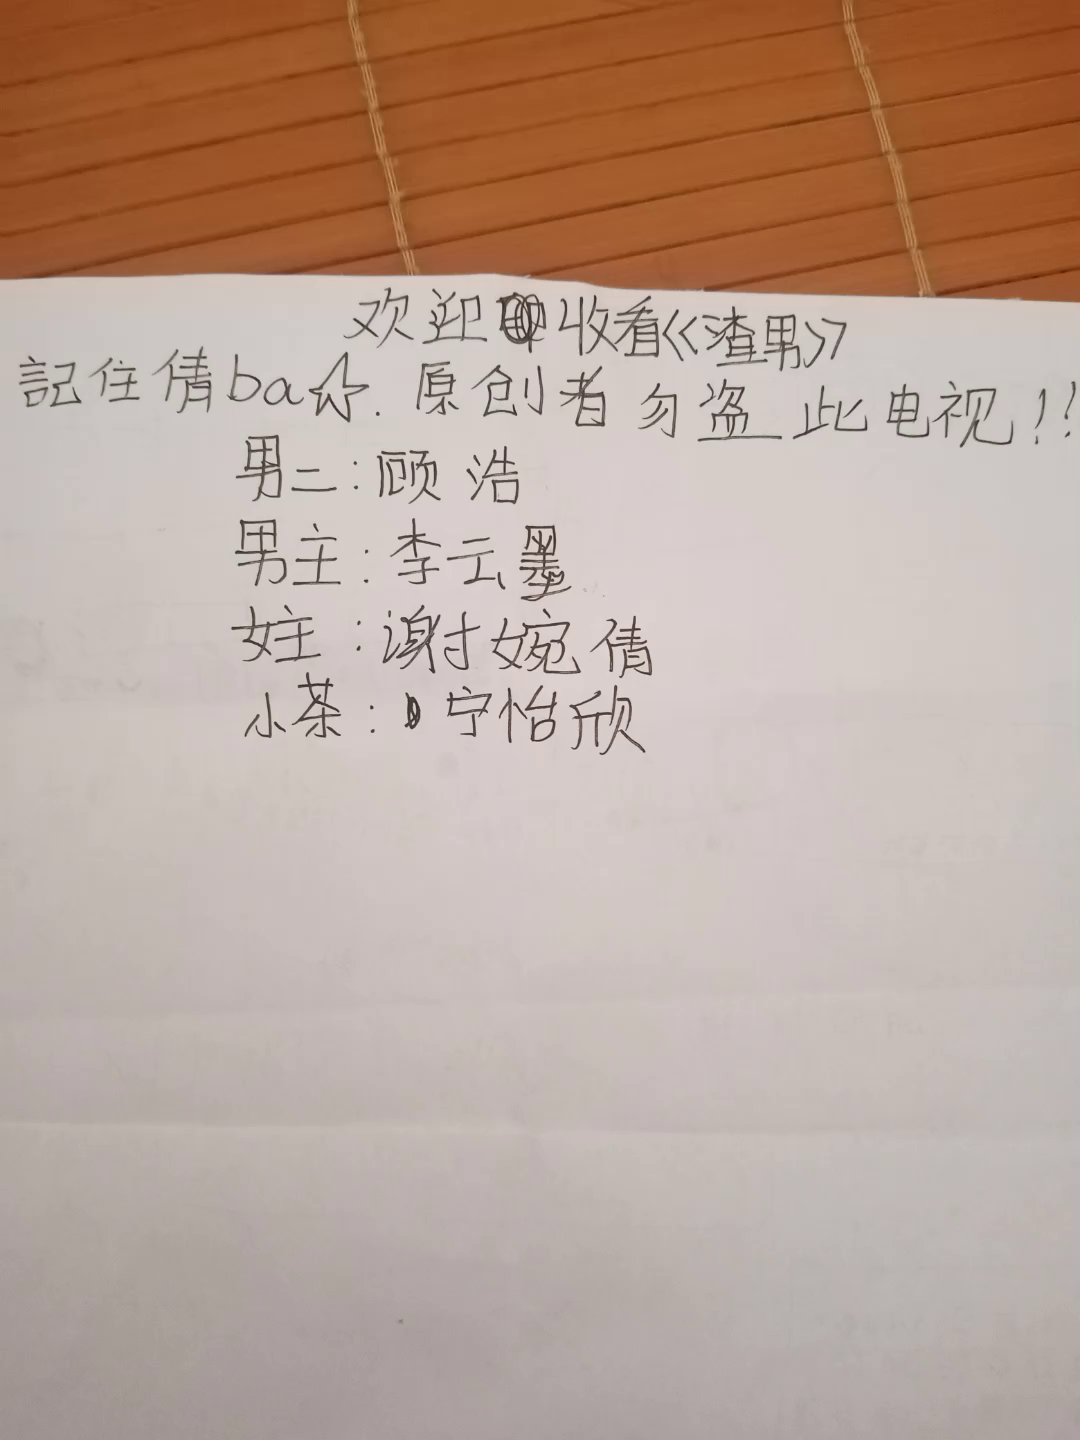 欢迎收看《渣男》
記住倩ba☆.原创者勿盗此电视!!
男二:顾浩
男主:李云墨
女主:谢婉倩
小茶:宁怡欣